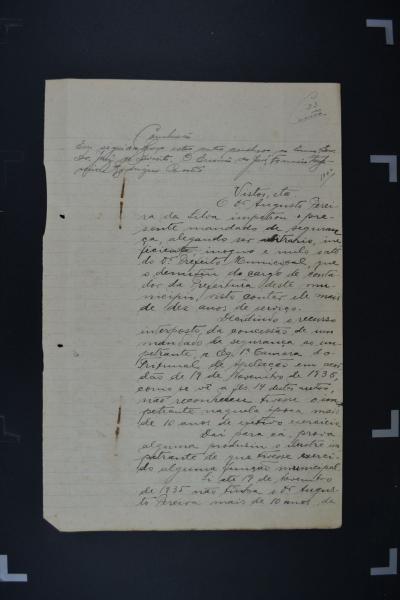 33
Conclusão
Em seguida faço estes autos conclusos ao Exmo. Snr.
Dr. Juiz de Direito. O Escrivão,
Vistos, etc.
O Dr. Augusto Perei-
ra da Silva impetrou o pre-
sente mandado de seguran-
ça, alegando ser arbitrario, ine-
ficiente, iniquo e nulo o ato
do Dr. Prefeito Municipal, que
o demitiu do cargo de conta-
dor da Prefeitura deste mu-
nicipio, visto contar ele mais
de dez anos de serviço.
Decidindo o recurso
interposto, da concessão de um
mandado de segurança ao im-
petrante, a Eg. 1ª Camara do
Tribunal de Apelação em acor-
dão de 19 de Novembro de 1935,
como se vê a fls 14 destes autos,
não reconheceu tivesse o im-
petrante naquela época mais
de 10 anos de efetivo exercicio
Daí para cá, prova
alguma produziu o ilustre im-
petrante de que tivesse exerci-
do alguma função municipal.
Si até 19 de Novembro
de 1935 não tinha o Dr. Augus-
to Pereira mais de 10 anos de